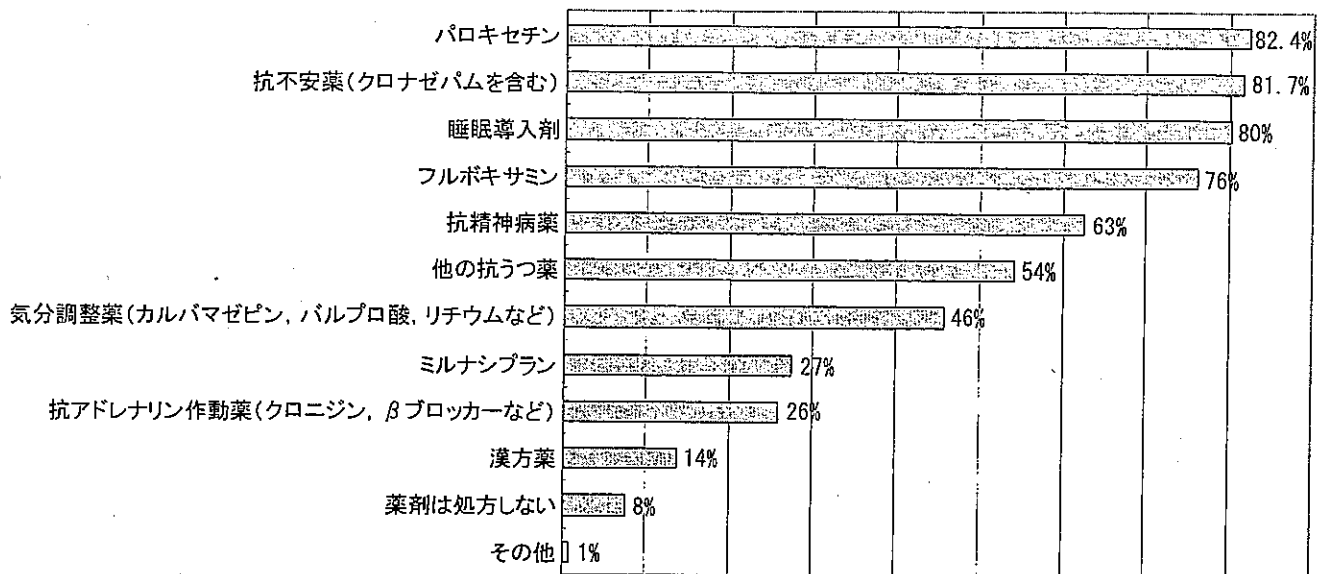 パロキセチン 82.4%
抗不安薬(クロナゼパムを含む) 81.7%
睡眠導入剤 80%
フルボキサミン 76%
抗精神病薬 63%
他の抗うつ薬 54%
気分調整薬(カルバマゼピン, バルプロ酸, リチウムなど) 46%
ミルナシプラン 27%
抗アドレナリン作動薬(クロニジン, βブロッカーなど) 26%
漢方薬 14%
薬剤は処方しない 8%
その他 1%